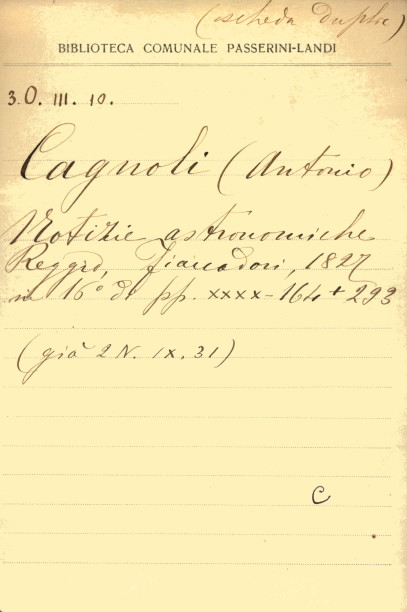 (scheda duplic)
BIBLIOTECA COMUNALE PASSERINI-LANDI
3.O. III. 10.
Cagnoli (Antonio)
Notizie astronomiche
Reggio, Fiaccadori, 1827
in 16° di pp. XXXX-164+293
(già 2 N. IX. 31)
C